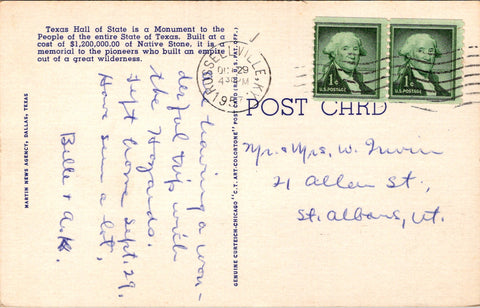 Texas Hall of State is a Monument to the
People of the entire State of Texas. Built at a
cost of $1,200,000.00 of Native Stone, it is a
memorial to the pioneers who built an empire
out of a great wilderness.
MARTIN NEWS AGENCY, DALLAS, TEXAS
Are having a won-
derful trip with
the Hazards.
Left home Sept. 29.
Have seen a lot.
Belle + A.K.
GENUINE CURTEICH-CHICAGO "C.T. ART-COLORTONE" POST CARD (REG. U.S. PAT. OFF.)
RUSSELLVILLE, KY.
OCT 29
4 PM
1957
U.S. POSTAGE
U.S. POSTAGE
POST CARD
Mr. + Mrs. W. Irwin
21 Allen St.,
St. Albans, Vt.